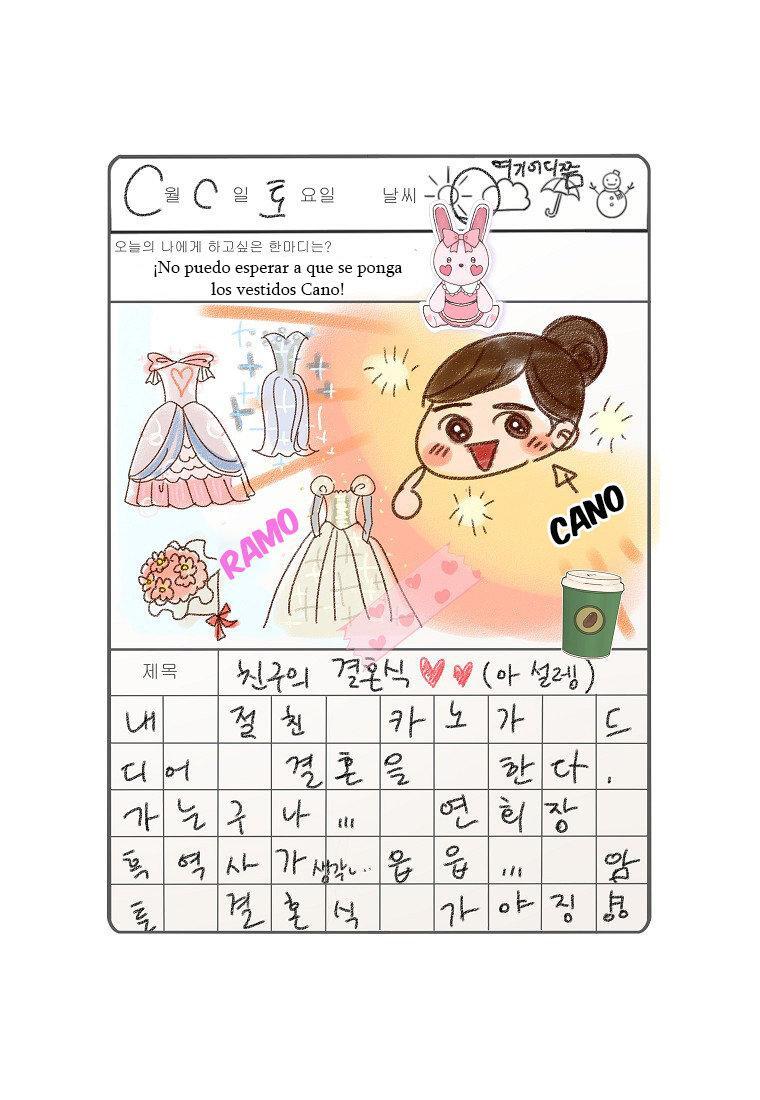 C월 C일 토요일 날씨
여기어디쯤
오늘의 나에게 하고싶은 한마디는?
¡No puedo esperar a que se ponga
los vestidos Cano!
CANO
RAMO
제목 친구의 결혼식 (아 설렝)
내 절친 카노가 드
디어 결혼을 한다.
가는구나... 연회장
흑역사가 생각나.. 읍읍... 암
튼 결혼식 가야징 헝